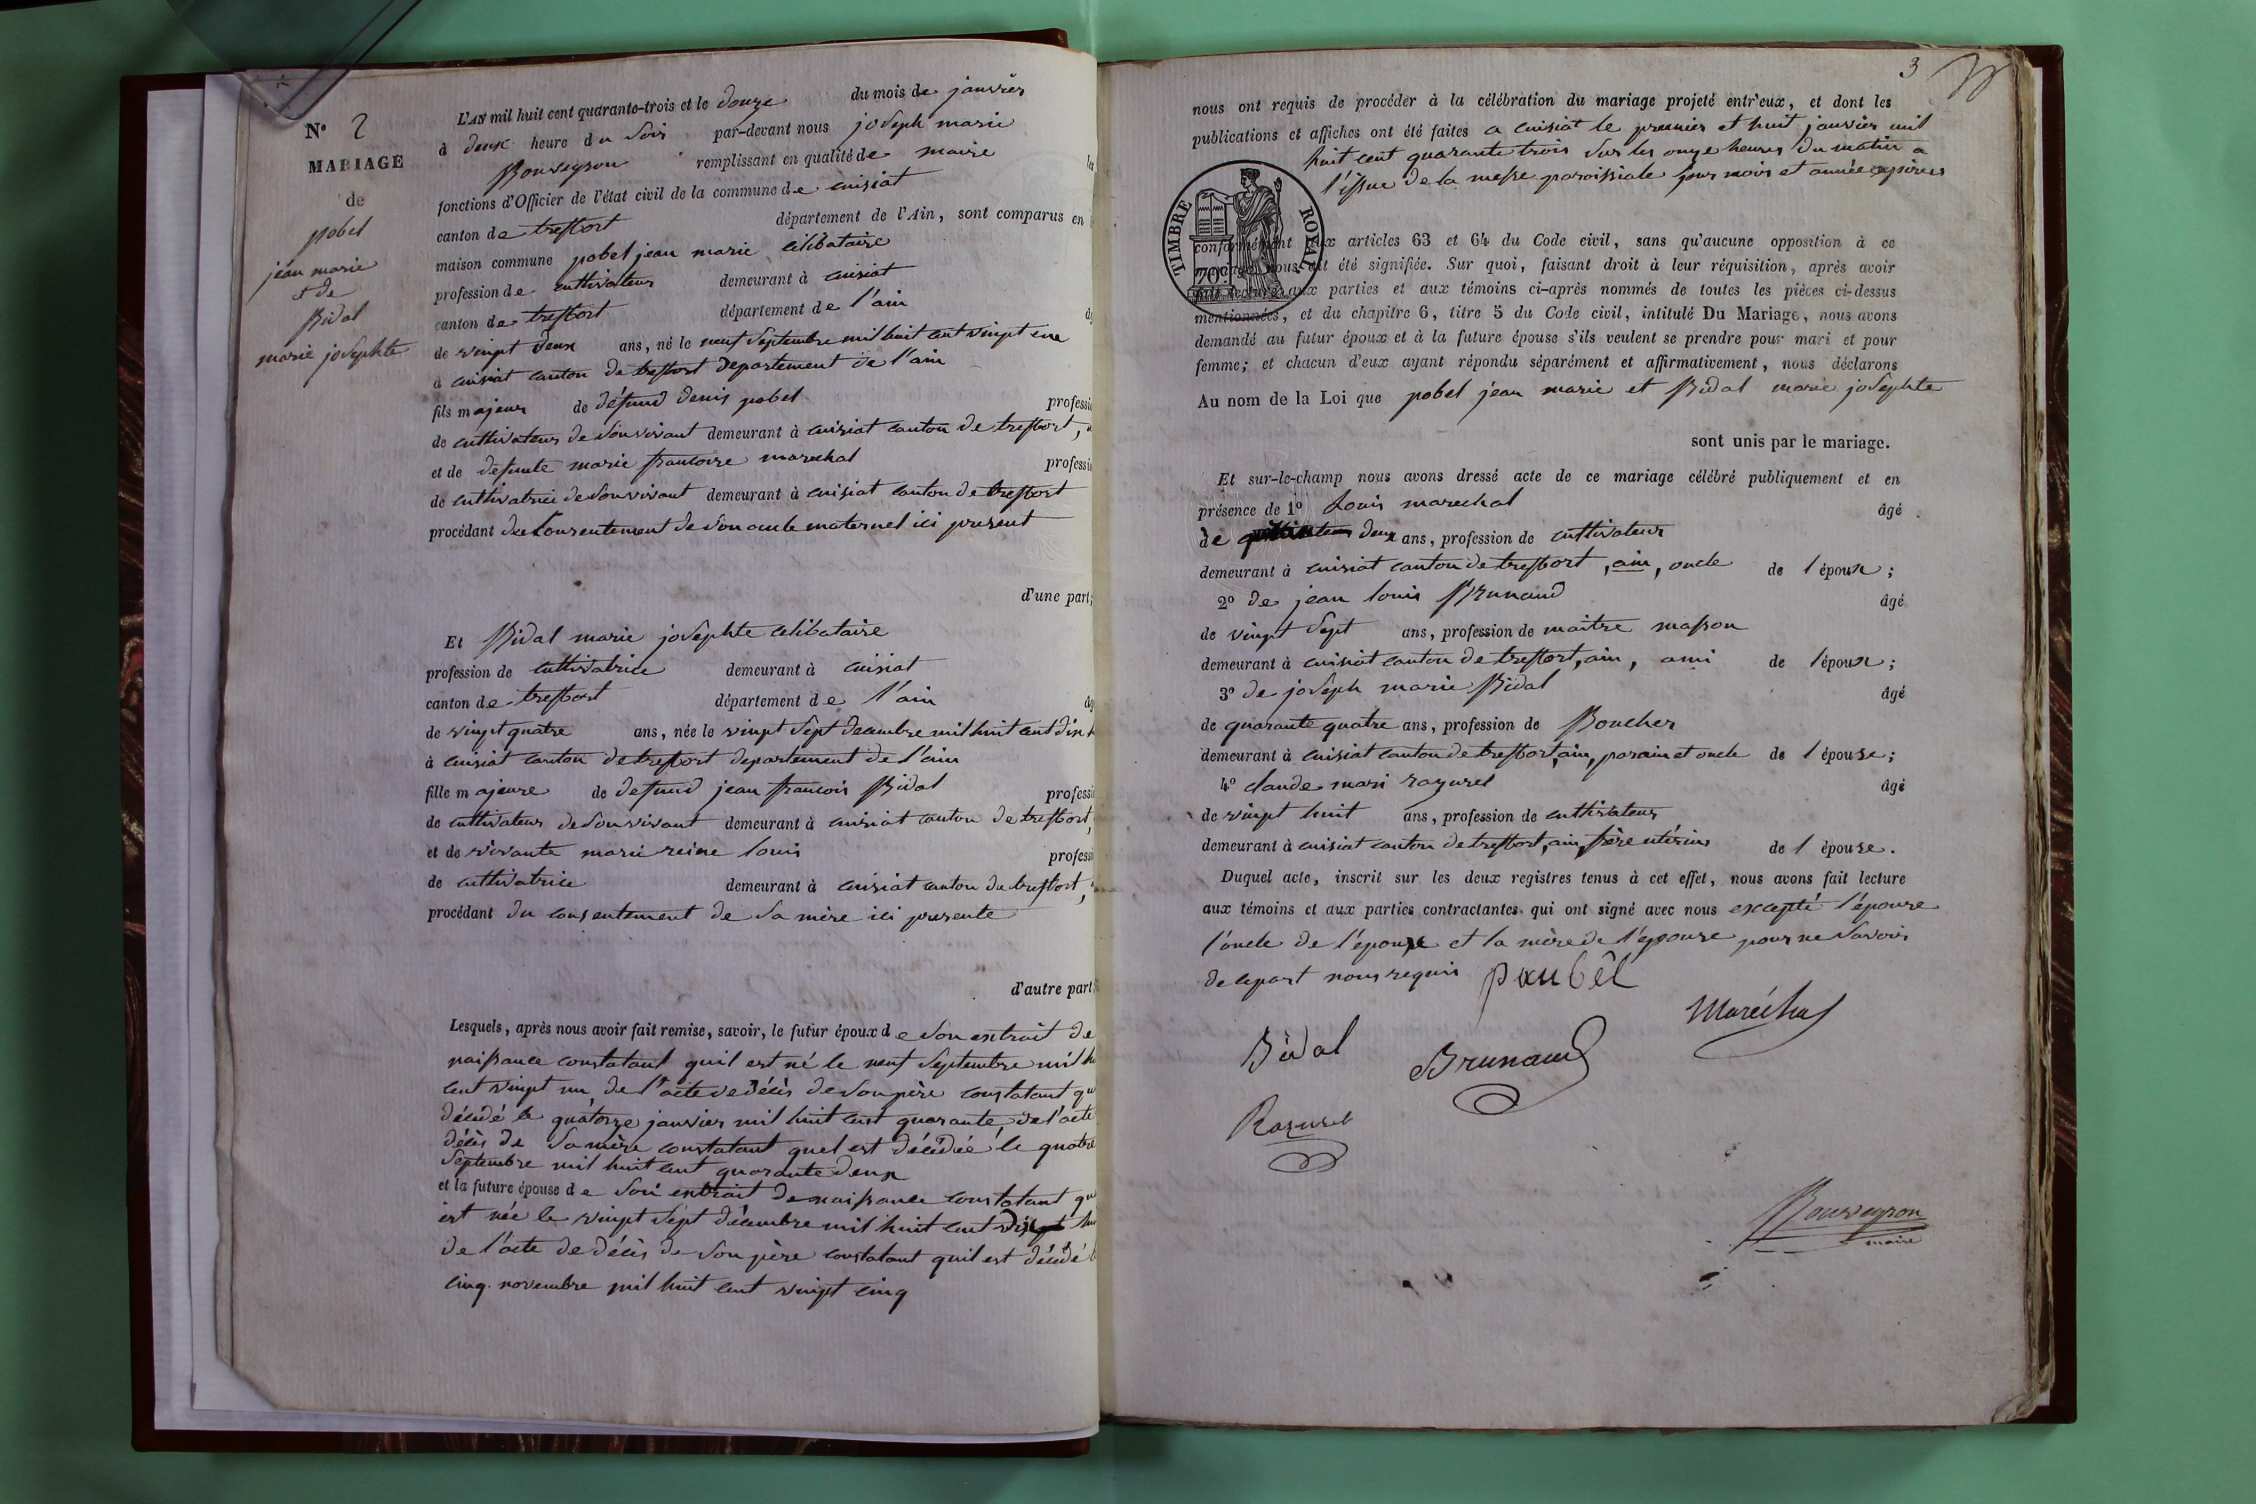 N° 2
MARIAGE
de
pobel
jean marie
et de
Bidal
marie josephte
L'AN mil huit cent quarante-trois et le douze du mois de janvier
à deux heure du soir par-devant nous joseph marie
Bouveyron remplissant en qualité de maire
fonctions d'Officier de l'état civil de la commune de cuisiat
canton de treffort département de l'Ain, sont comparus en
maison commune pobel jean marie célibataire
profession de cultivateur demeurant à cuisiat
canton de treffort département de l'ain
de vingt deux ans, né le neuf septembre mil huit cent vingt une
à cuisiat canton de treffort departement de l'ain
fils majeur de défund denis pobel professi
de cultivateur de son vivant demeurant à cuisiat canton de treffort,
et de defunte marie francoise marechal professi
de cultivatrice de son vivant demeurant à cuisiat canton de treffort
procédant du consentement de son oncle maternel ici present
d'une part;
Et Bidal marie josephte célibataire
profession de cultivatrice demeurant à cuisiat
canton de treffort département de l'ain
de vingt quatre ans, née le vingt sept decembre mil huit cent dix h
à cuisiat canton de treffort departement de l'ain
fille majeure de defund jean francois Bidal professi
de cultivateur de son vivant demeurant à cuisiat canton de treffort,
et de vivante marie reine louis professi
de cultivatrice demeurant à cuisiat canton de treffort,
procédant du consentement de sa mère ici presente
d'autre part
Lesquels, après nous avoir fait remise, savoir, le futur époux de son extrait de
naissance constatant quil est né le neuf septembre mil h
cent vingt un, de l'acte de décès de son père constatant qu
décédé le quatorze janvier mil huit cent quarante, de l'acte
décès de sa mère constatant quel est décédée le quatre
septembre mil huit cent quarante deux
et la future épouse de son extrait de naissance constatant qu
est née le vingt sept décembre mil huit cent dix hu
de l'acte de décès de son père constatant quil est décédé l
cinq novembre mil huit cent vingt cinq
3
nous ont requis de procéder à la célébration du mariage projeté entr'eux, et dont les
publications et affiches ont été faites a cuisiat le premier et huit janvier mil
huit cent quarante trois sur les onze heures du matin a
l'issue de la messe paroissiale jour mois et année expirées
TIMBRE ROYAL
70c.
conformément aux articles 63 et 64 du Code civil, sans qu'aucune opposition à ce
mariage nous ait été signifiée. Sur quoi, faisant droit à leur réquisition, après avoir
fait lecture aux parties et aux témoins ci-après nommés de toutes les pièces ci-dessus
mentionnées, et du chapitre 6, titre 5 du Code civil, intitulé Du Mariage, nous avons
demandé au futur époux et à la future épouse s'ils veulent se prendre pour mari et pour
femme; et chacun d'eux ayant répondu séparément et affirmativement, nous déclarons
Au nom de la Loi que pobel jean marie et Bidal marie josephte
sont unis par le mariage.
Et sur-le-champ nous avons dressé acte de ce mariage célébré publiquement et en
présence de 1° Louis marechal âgé
de deux ans, profession de cultivateur
demeurant à cuisiat canton de treffort, ain, oncle de l'époux;
2° de jean louis Brunaud âgé
de vingt sept ans, profession de maître masson
demeurant à cuisiat canton de treffort, ain, ami de l'époux;
3° de joseph marie Bidal âgé
de quarante quatre ans, profession de Boucher
demeurant à cuisiat canton de treffort, ain, parain et oncle de l'épouse;
4° claude mari razurel âgé
de vingt huit ans, profession de cultivateur
demeurant à cuisiat canton de treffort, ain, frère utérin de l'épouse.
Duquel acte, inscrit sur les deux registres tenus à cet effet, nous avons fait lecture
aux témoins et aux parties contractantes qui ont signé avec nous excepté l'épouse
l'oncle de l'épouxe et la mère de l'épouse pour ne savoir
de lapart nous requis paubêl
Maréchal
Bidal
Brunaud
Razurel
Bouveyron
maire